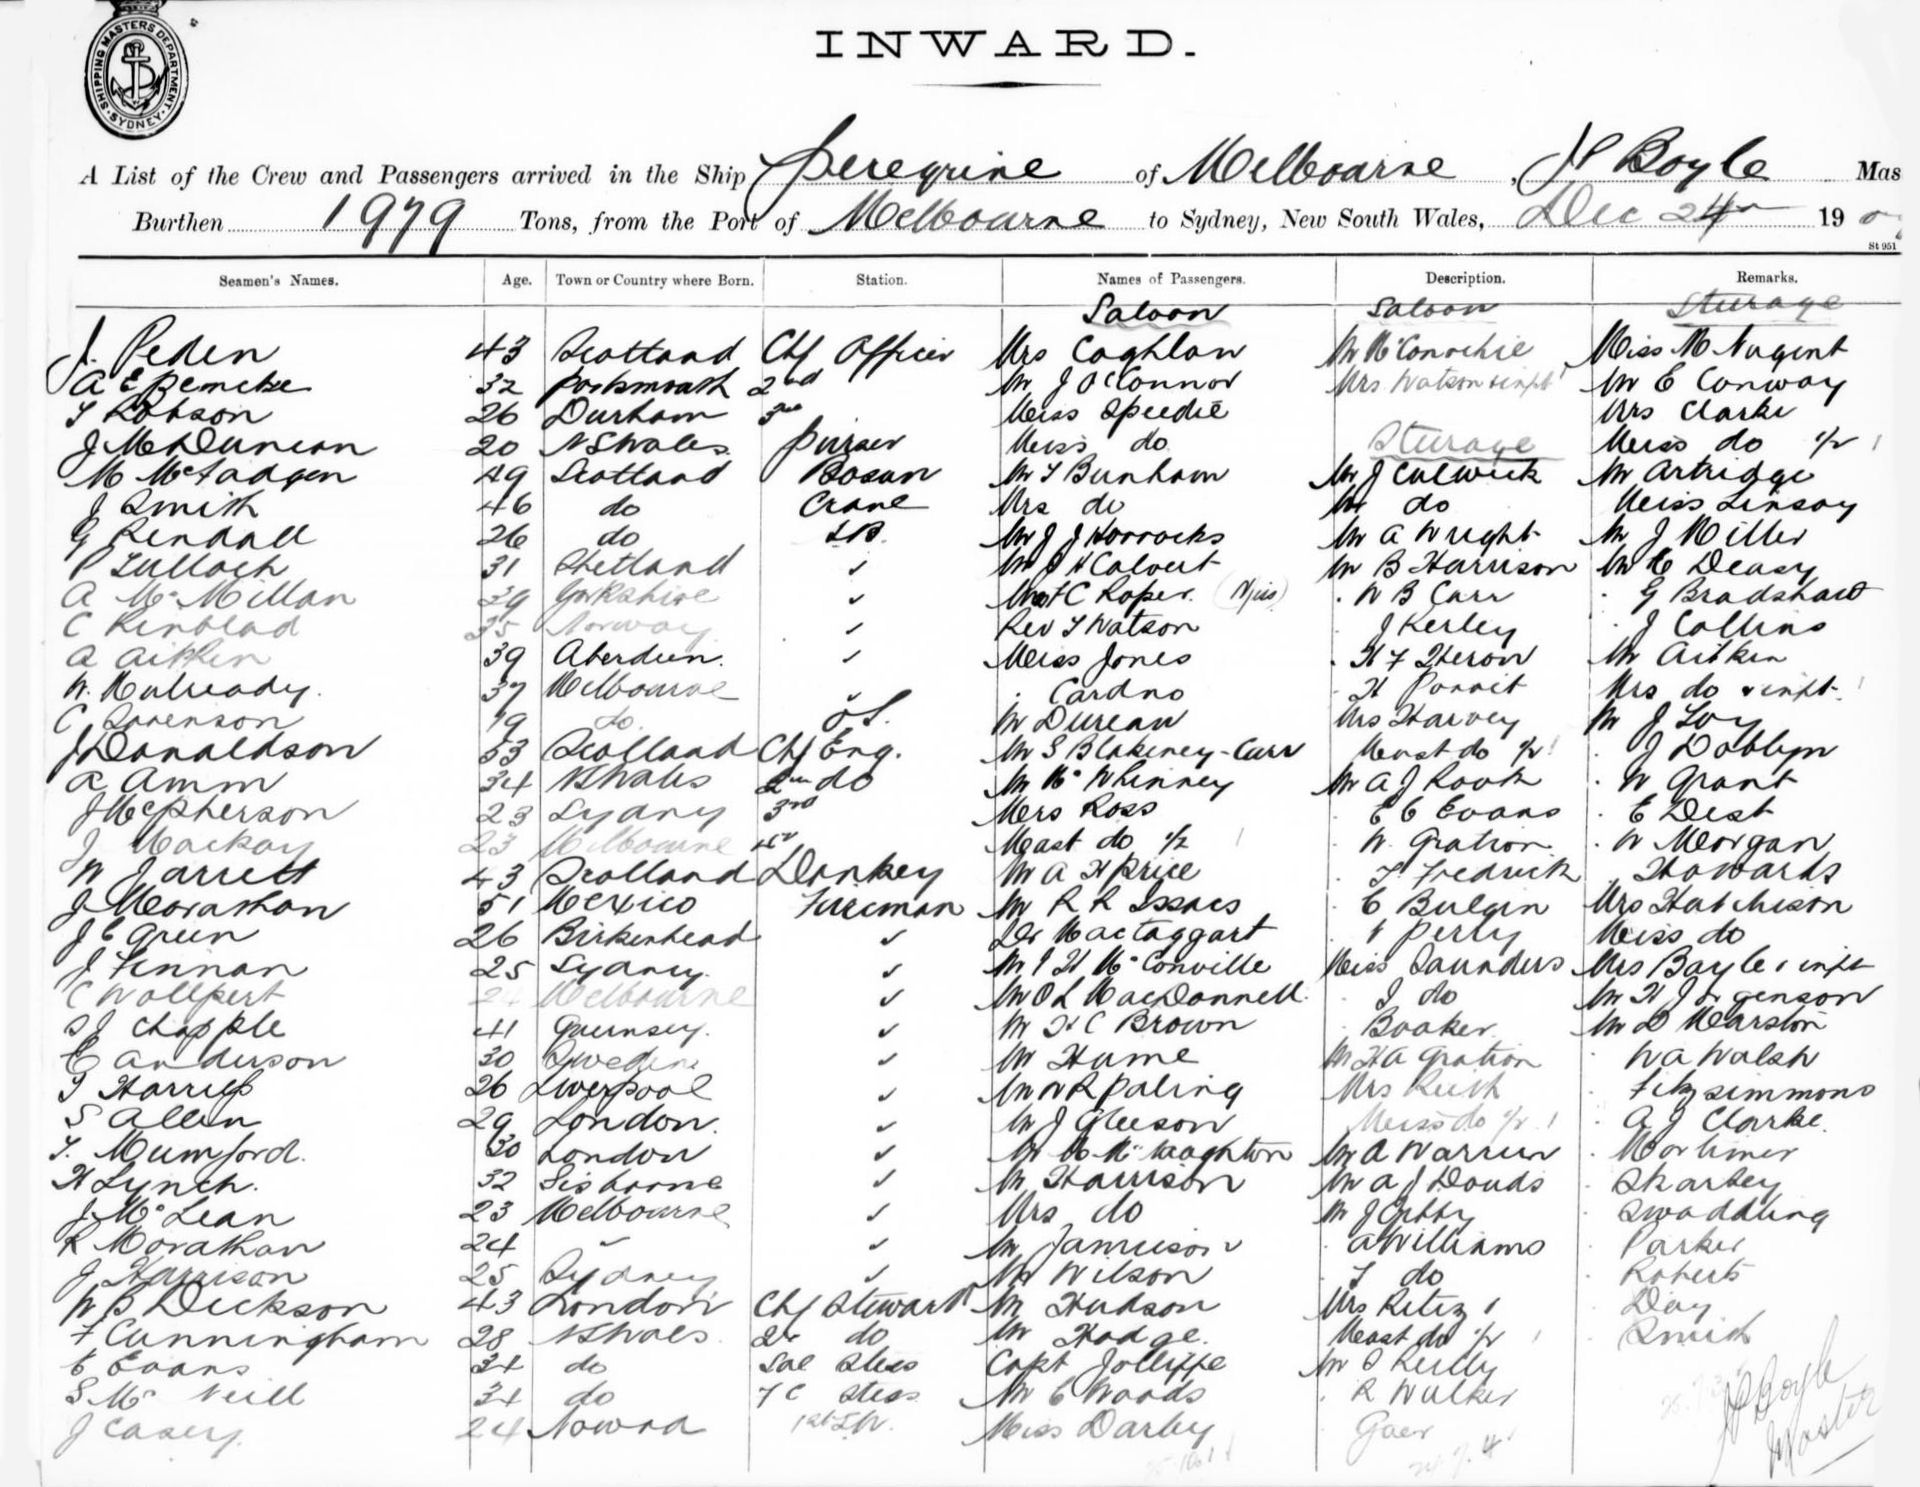 SHIPPING MASTERS DEPARTMENT SYDNEY
INWARD.
A List of the Crew and Passengers arrived in the Ship Peregrine of Melbourne, J P Boyle Mas
Burthen 1979 Tons, from the Port of Melbourne to Sydney, New South Wales, Dec 24 19
St 951
Seamen's Names. Age. Town or Country where Born. Station. Names of Passengers. Description. Remarks.
Saloon Saloon Sturage
J. Peden 43 Scotland Chf Officer Mrs Coghlan Mr McConochie Miss M Nugent
A E Bemcke 32 Portsmouth 2nd Mr J O'Connor Mrs Watson & inft Mr E Conway
T Robson 26 Durham 3rd Miss Speedie Mrs Clarke
J McDuncan 20 NSWales Purser Miss do Sturage Miss do 1/2 1
M McFadgen 49 Scotland Bosun Mr T Burnham Mr J Culwick Mr Artridge
J Smith 46 do Crane Mrs do Mr do Miss Linsay
G Rendall 26 do AB. Mr J J Horrocks Mr A Wright Mr J Miller
P Tulloch 31 Shetland ✓ Mr J H Calvert Mr B Harrison Mr H Deasy
A McMillan 39 Yorkshire ✓ C Roper. (Miss) W B Carr G Bradshaw
C Renblad 35 Norway ✓ Rev T Watson J Kerley J Collins
A Aitken 39 Aberdeen. ✓ Miss Jones H F Theron Mr Aitken
W. Mulready. 37 Melbourne ✓ Cardno H Mrs do & inft 1
C Sorenson 19 do. O.S. Mr Durean Mrs Harvey Mr J Foy
J Donaldson 53 Scotland Chf Eng. Mr S Blakeney-Carr Mast do 1/2 1 J Doblyn
A Amm 34 NSWales 2nd do Mr McWhinney Mr A J Rook W Grant
J McPherson 23 Sydney 3rd Mrs Ross E C Evans E Dest
J Mackay 23 Melbourne 4th Mast do 1/2 1 W. Gration W Morgan
W Jarrett 43 Scotland Donkey Mr A H Price T Fredrick Howards
J Morathan 51 Mexico Fireman Mr R R Issacs C Bulgin Mrs Hutchison
J E Green 26 Birkenhead ✓ Dr Mactaggart Perry Miss do
J Finnan 25 Sydney. ✓ Mr J H McConville Miss Saunders Mrs Bayle & inft
C Wollpert 24 Melbourne ✓ Mr O L MacDonnell J do Mr H Jorgenson
S J Chapple 41 Guernsey. ✓ Mr H C Brown Booker. Mr D Marston
C Anderson 30 Sweden ✓ Mr Hume Mr H A Gration W A Walsh
T Harries 26 Liverpool ✓ Mr W R Paling Mrs Keith Fitzsimmons
S Allen 29 London. ✓ Mr J Gleeson Miss do 1/2 1 A J Clarke.
T. Mumford. 30 London ✓ Mr McNaughton Mr A Warren Mortimer
H Lynch. 32 Gisborne ✓ Mr Harrison Mr A J Douds Sharkey
J McLean 23 Melbourne ✓ Mrs do Mr J Gibby Swaddling
R Morathan 24 " ✓ Mr Jamieson A Williams Parker
J Harrison 25 Sydney ✓ Mr Wilson T do Roberts
W B Dickson 43 London Chf Steward Mr Hudson Mrs Ritz 1 Day
F Cunningham 28 NSWales. 2nd do Mr Hodge. Mast do 1/2 1 Smith
E Evans 34 do Sal Stess Capt Jolliffe Mr S Reilly
S McNeill 34 do F C Stess Mr C Woods R Walker
J Casey. 24 Nowra 1st Miss Darby Gaer
J P Boyle
Master